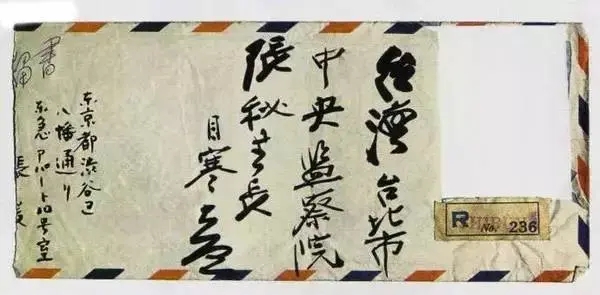 台灣台北市
中央監察院
張秘書長
目寒
東京都渋谷区
八幡通り
東急アパート号室
張爰
書
R
No. 236